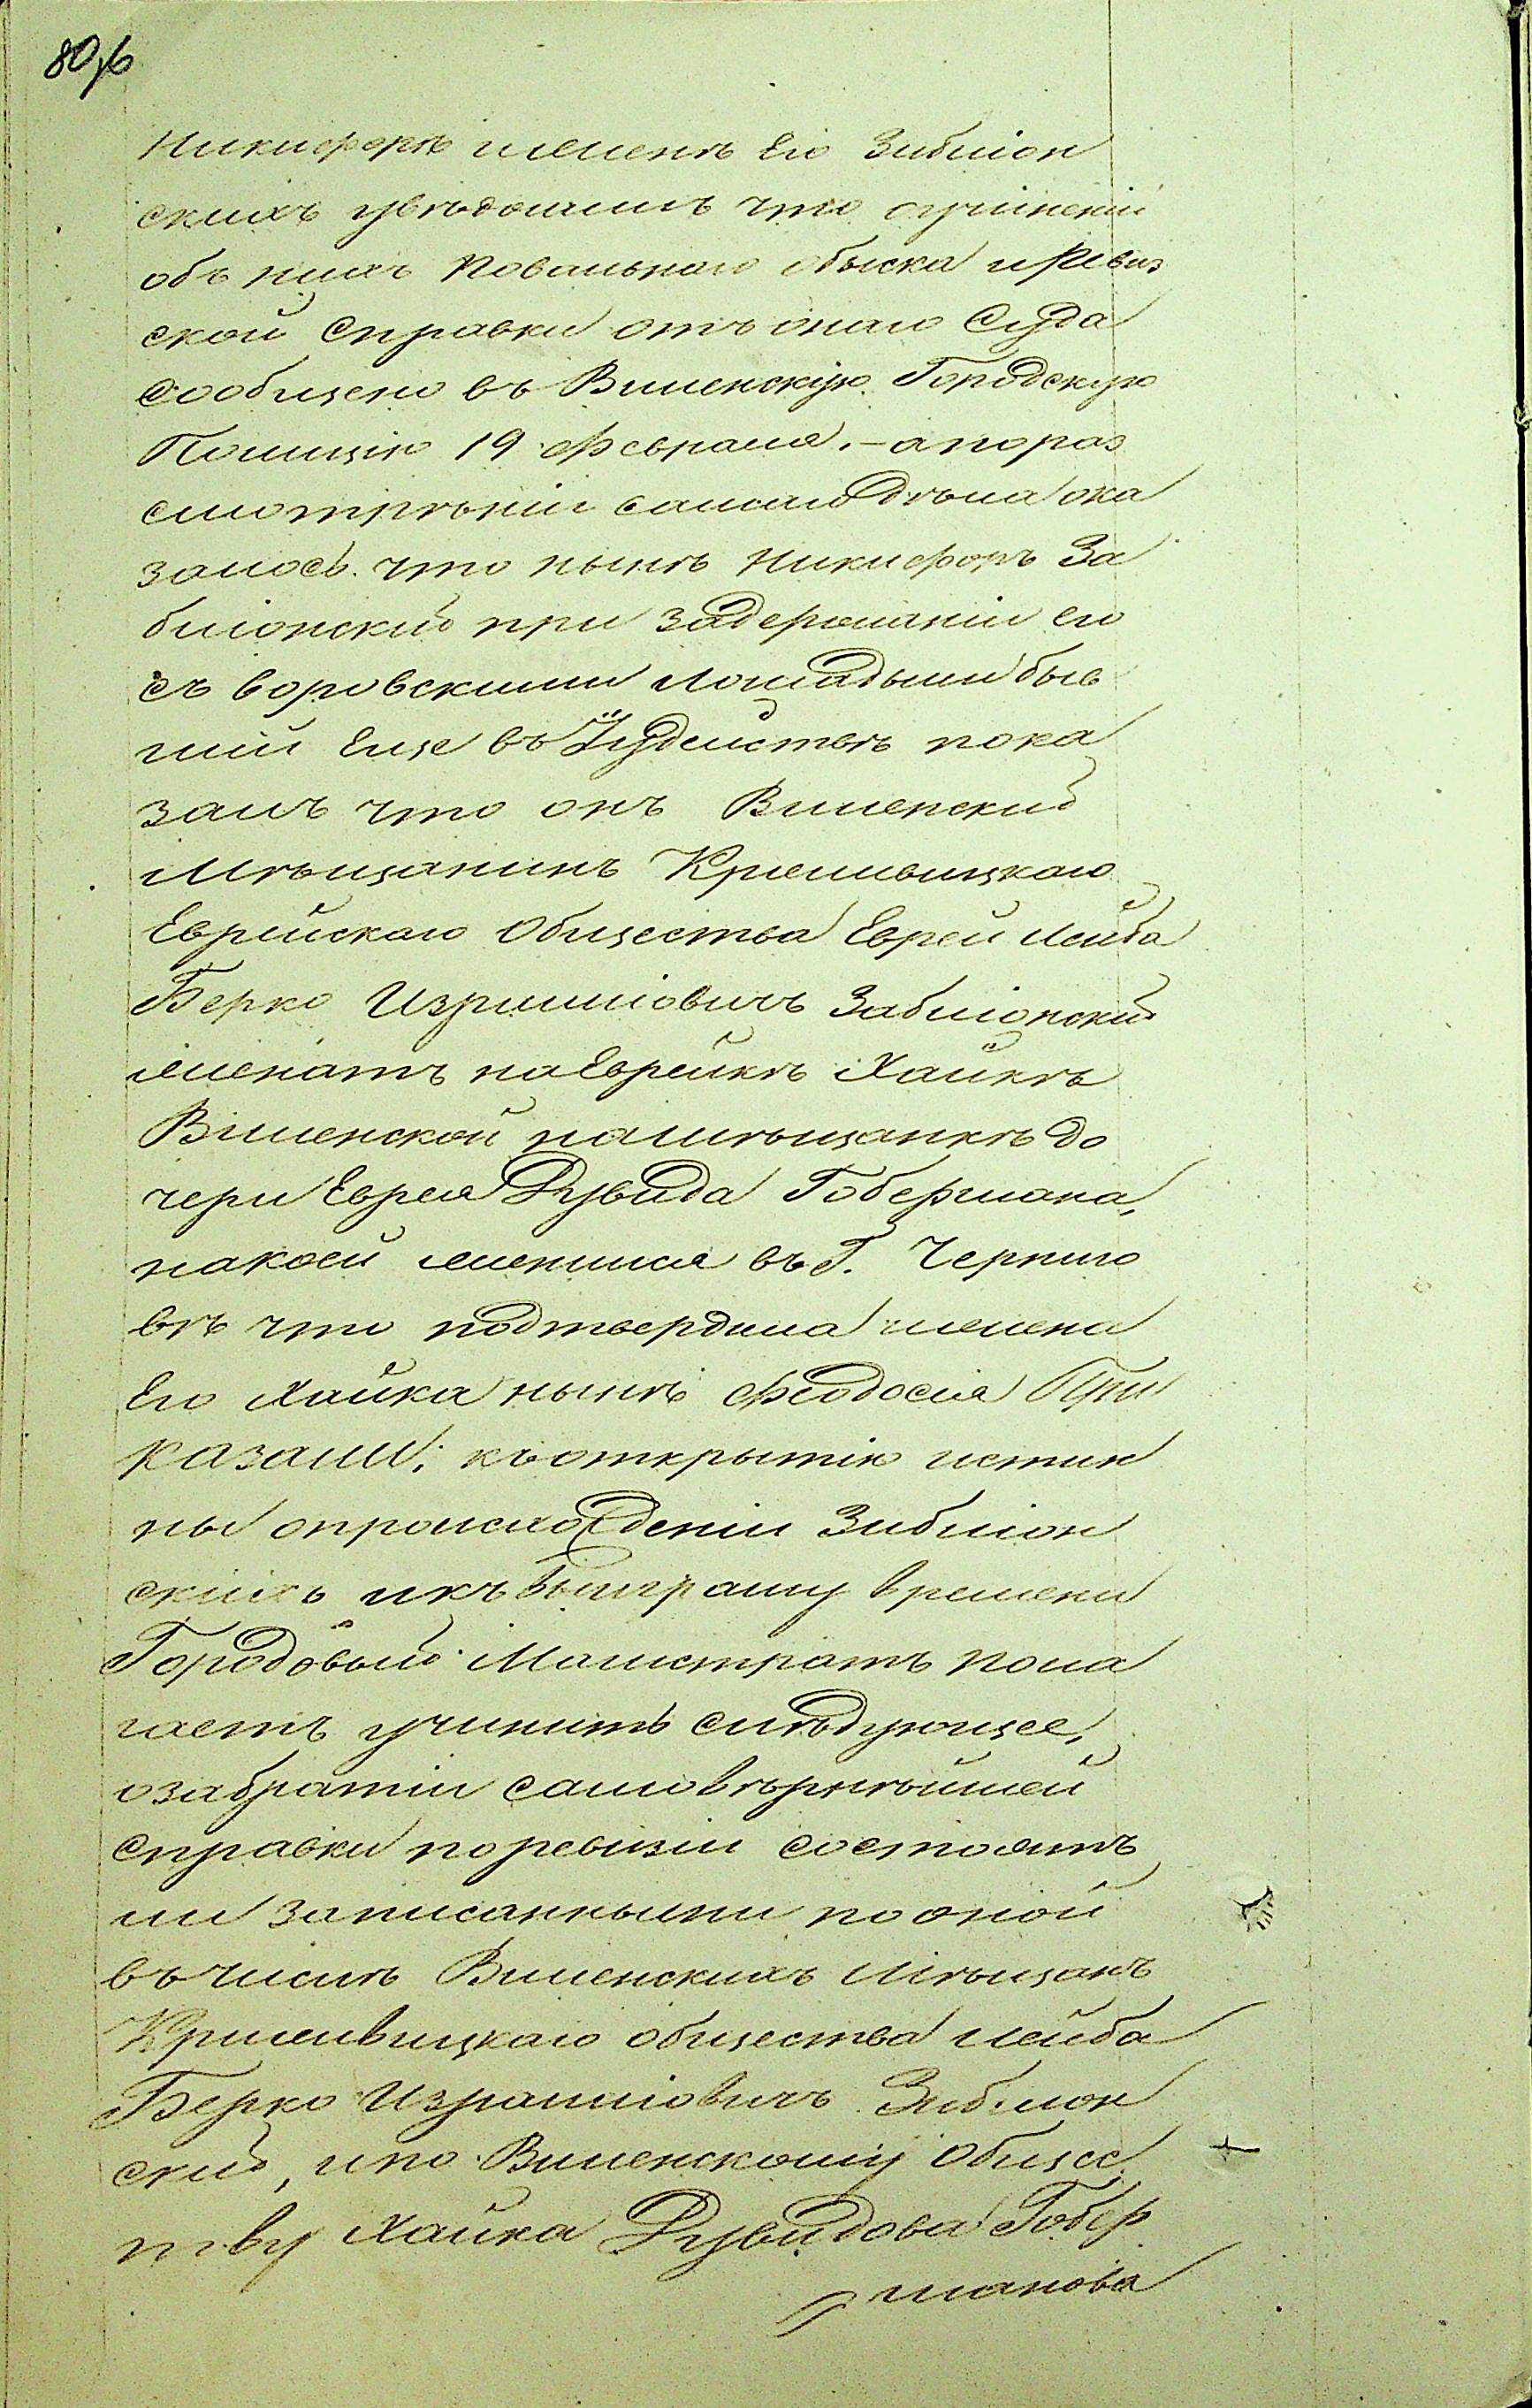 80/б
Никифорѣ и женѣ Его Зиблон
скихъ увѣдомилъ что о учиненiи
объ нихъ Повальнаго обыска и Ревиз
ской Справки отъ онаго Суда
Сообщено въ Виленскую Городскую
Полицiю 19 Февраля. – а по раз
смотрѣнiи самаго дѣла ока
залось что нынѣ Никифоръ За
блонскiй при задержанiи его
съ воровскими лошадьми быв
шiй Еще въ Iудействѣ пока
залъ что онъ Виленскiй
Мѣщанинъ
Еврейскаго Общества Еврей Лейба
Берко Израиліовичъ Заблонскiй
женатъ на Еврейкѣ Хайкѣ
Виленской на мѣщанкѣ до
чери Еврея Дувида Гобермана,
на коей женился въ Г. Черниго
вѣ что подтвердила и жена
Его Хайка нынѣ Феодосiя При
казали: къ открытiю истин
ны о происхожденiи Зиблон
скихъ и къ выиграшу времени
Городовый Магистратъ пола
гаетъ учинить слѣдующее,
о забратiи самовѣрнѣйшей
справки по ревизiи состоятъ
ли записанными по оной
въ числѣ Виленскихъ Мѣщанъ
общества Лейба
Берко Израиліовичъ Зиблон
скiй, и по Виленскому Общес
тву Хайка Дувидова Гобер
манова